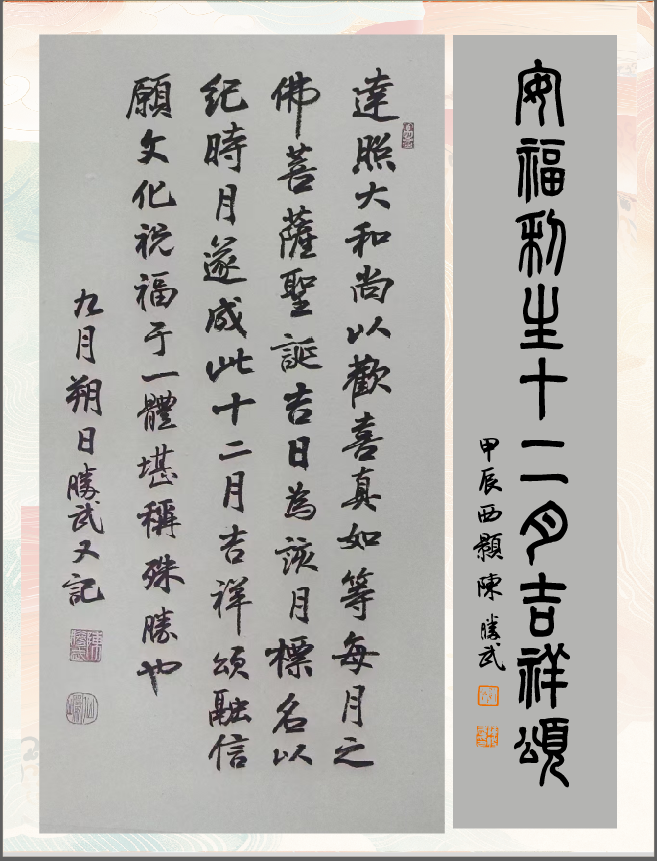 安福利生十二月吉祥頌
甲辰西顥陳勝武
達照大和尚以歡喜真如等每月之
佛菩薩聖誕吉日為該月標名以
紀時月遂成此十二月吉祥頌融信
願文化祝福于一體堪稱殊勝也
九月朔日勝武又記